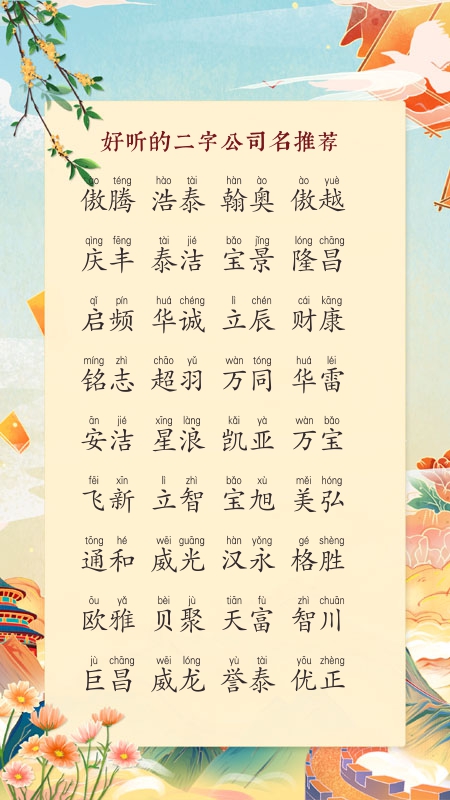 好听的二字公司名推荐
ào téng hào tài hàn ào ào yuè
傲腾 浩泰 翰奥 傲越
qìng fēng tài jié bǎo jǐng lóng chāng
庆丰 泰洁 宝景 隆昌
qǐ pín huá chéng lì chén cái kāng
启频 华诚 立辰 财康
míng zhì chāo yǔ wàn tóng huá léi
铭志 超羽 万同 华雷
ān jié xīng làng kǎi yà wàn bǎo
安洁 星浪 凯亚 万宝
fēi xīn lì zhì bǎo xù měi hóng
飞新 立智 宝旭 美弘
tōng hé wēi guāng hàn yǒng gé shèng
通和 威光 汉永 格胜
ōu yǎ bèi jù tiān fù zhì chuān
欧雅 贝聚 天富 智川
jù chāng wēi lóng yù tài yōu zhèng
巨昌 威龙 誉泰 优正